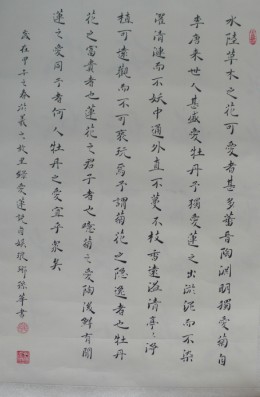 水陸草木之花可愛者甚多蕃晉陶渊明獨愛菊自
李唐來世人甚盛愛牡丹予獨愛蓮之出淤泥而不染
濯清漣而不妖中通外直不蔓不枝香遠溢清亭亭淨
植可遠觀而不可褻玩焉予謂菊花之隱逸者也牡丹
花之富貴者也蓮花之君子者也噫菊之愛陶後鮮有聞
蓮之愛同予者何人牡丹之愛宜乎衆矣
歲在甲午之春於羲之故里錄愛蓮說書